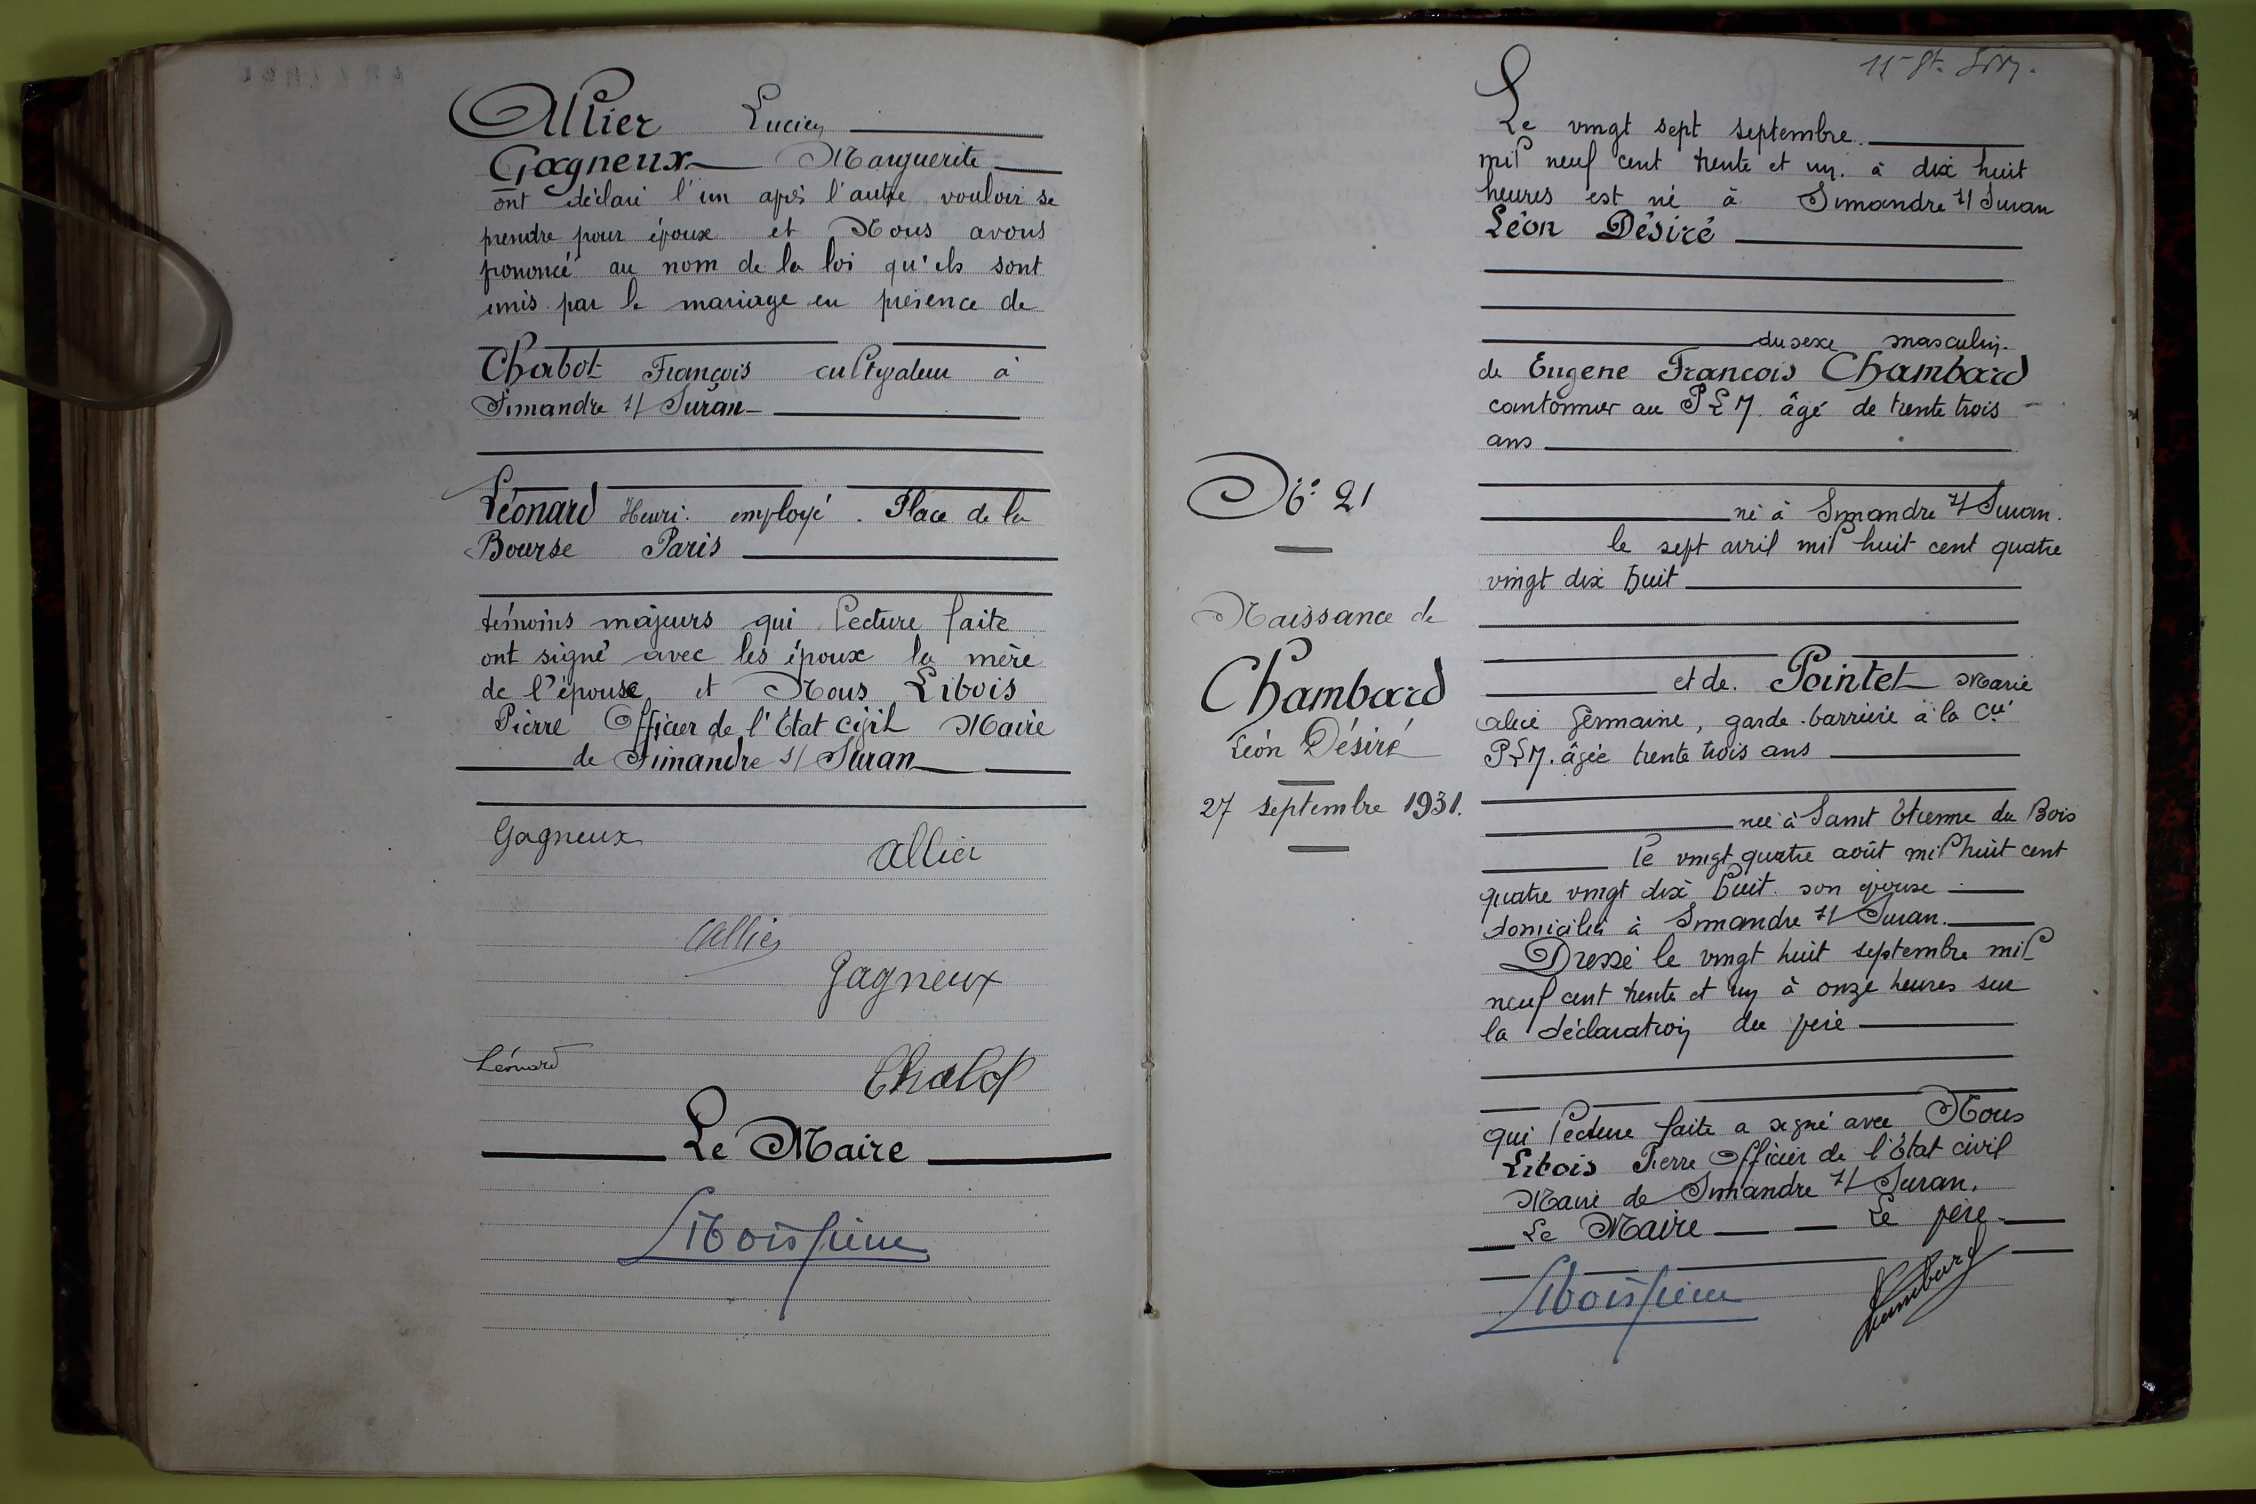 Allier Lucien
Gagneux Marguerite
ont déclaré l'un après l'autre vouloir se
prendre pour époux et Nous avons
prononcé au nom de la loi qu'ils sont
unis par le mariage en présence de
Chabot François cultivateur à
Simandre s/ Suran
Léonard Henri employé. Place de la
Bourse Paris
témoins majeurs qui lecture faite
ont signé avec les époux la mère
de l'épouse et Nous Libois
Pierre Officier de l'Etat Civil Maire
de Simandre s/ Suran
Gagneux
Allier
Allier
Gagneux
Léonard
Chabot
Le Maire
Libois Pierre
Nº 21
Naissance de
Chambard
Léon Désiré
27 septembre 1931.
Le vingt sept septembre
mil neuf cent trente et un à dix huit
heures est né à Simandre s/ Suran
Léon Désiré
du sexe masculin
de Eugene François Chambard
cantonnier au PLM. âgé de trente trois
ans
né à Simandre s/ Suran.
le sept avril mil huit cent quatre
vingt dix huit
et de. Pointet Marie
alice Germaine, garde-barrière à la Cie
PLM. âgée trente trois ans
née à Saint Etienne du Bois
le vingt quatre août mil huit cent
quatre vingt dix huit. son épouse
domiciliés à Simandre s/ Suran.
Dressé le vingt huit septembre mil
neuf cent trente et un à onze heures sur
la déclaration du père
qui lecture faite a signé avec Nous
Libois Pierre Officier de l'Etat civil
Maire de Simandre s/ Suran.
Le Maire Le père
Libois Pierre
Chambard